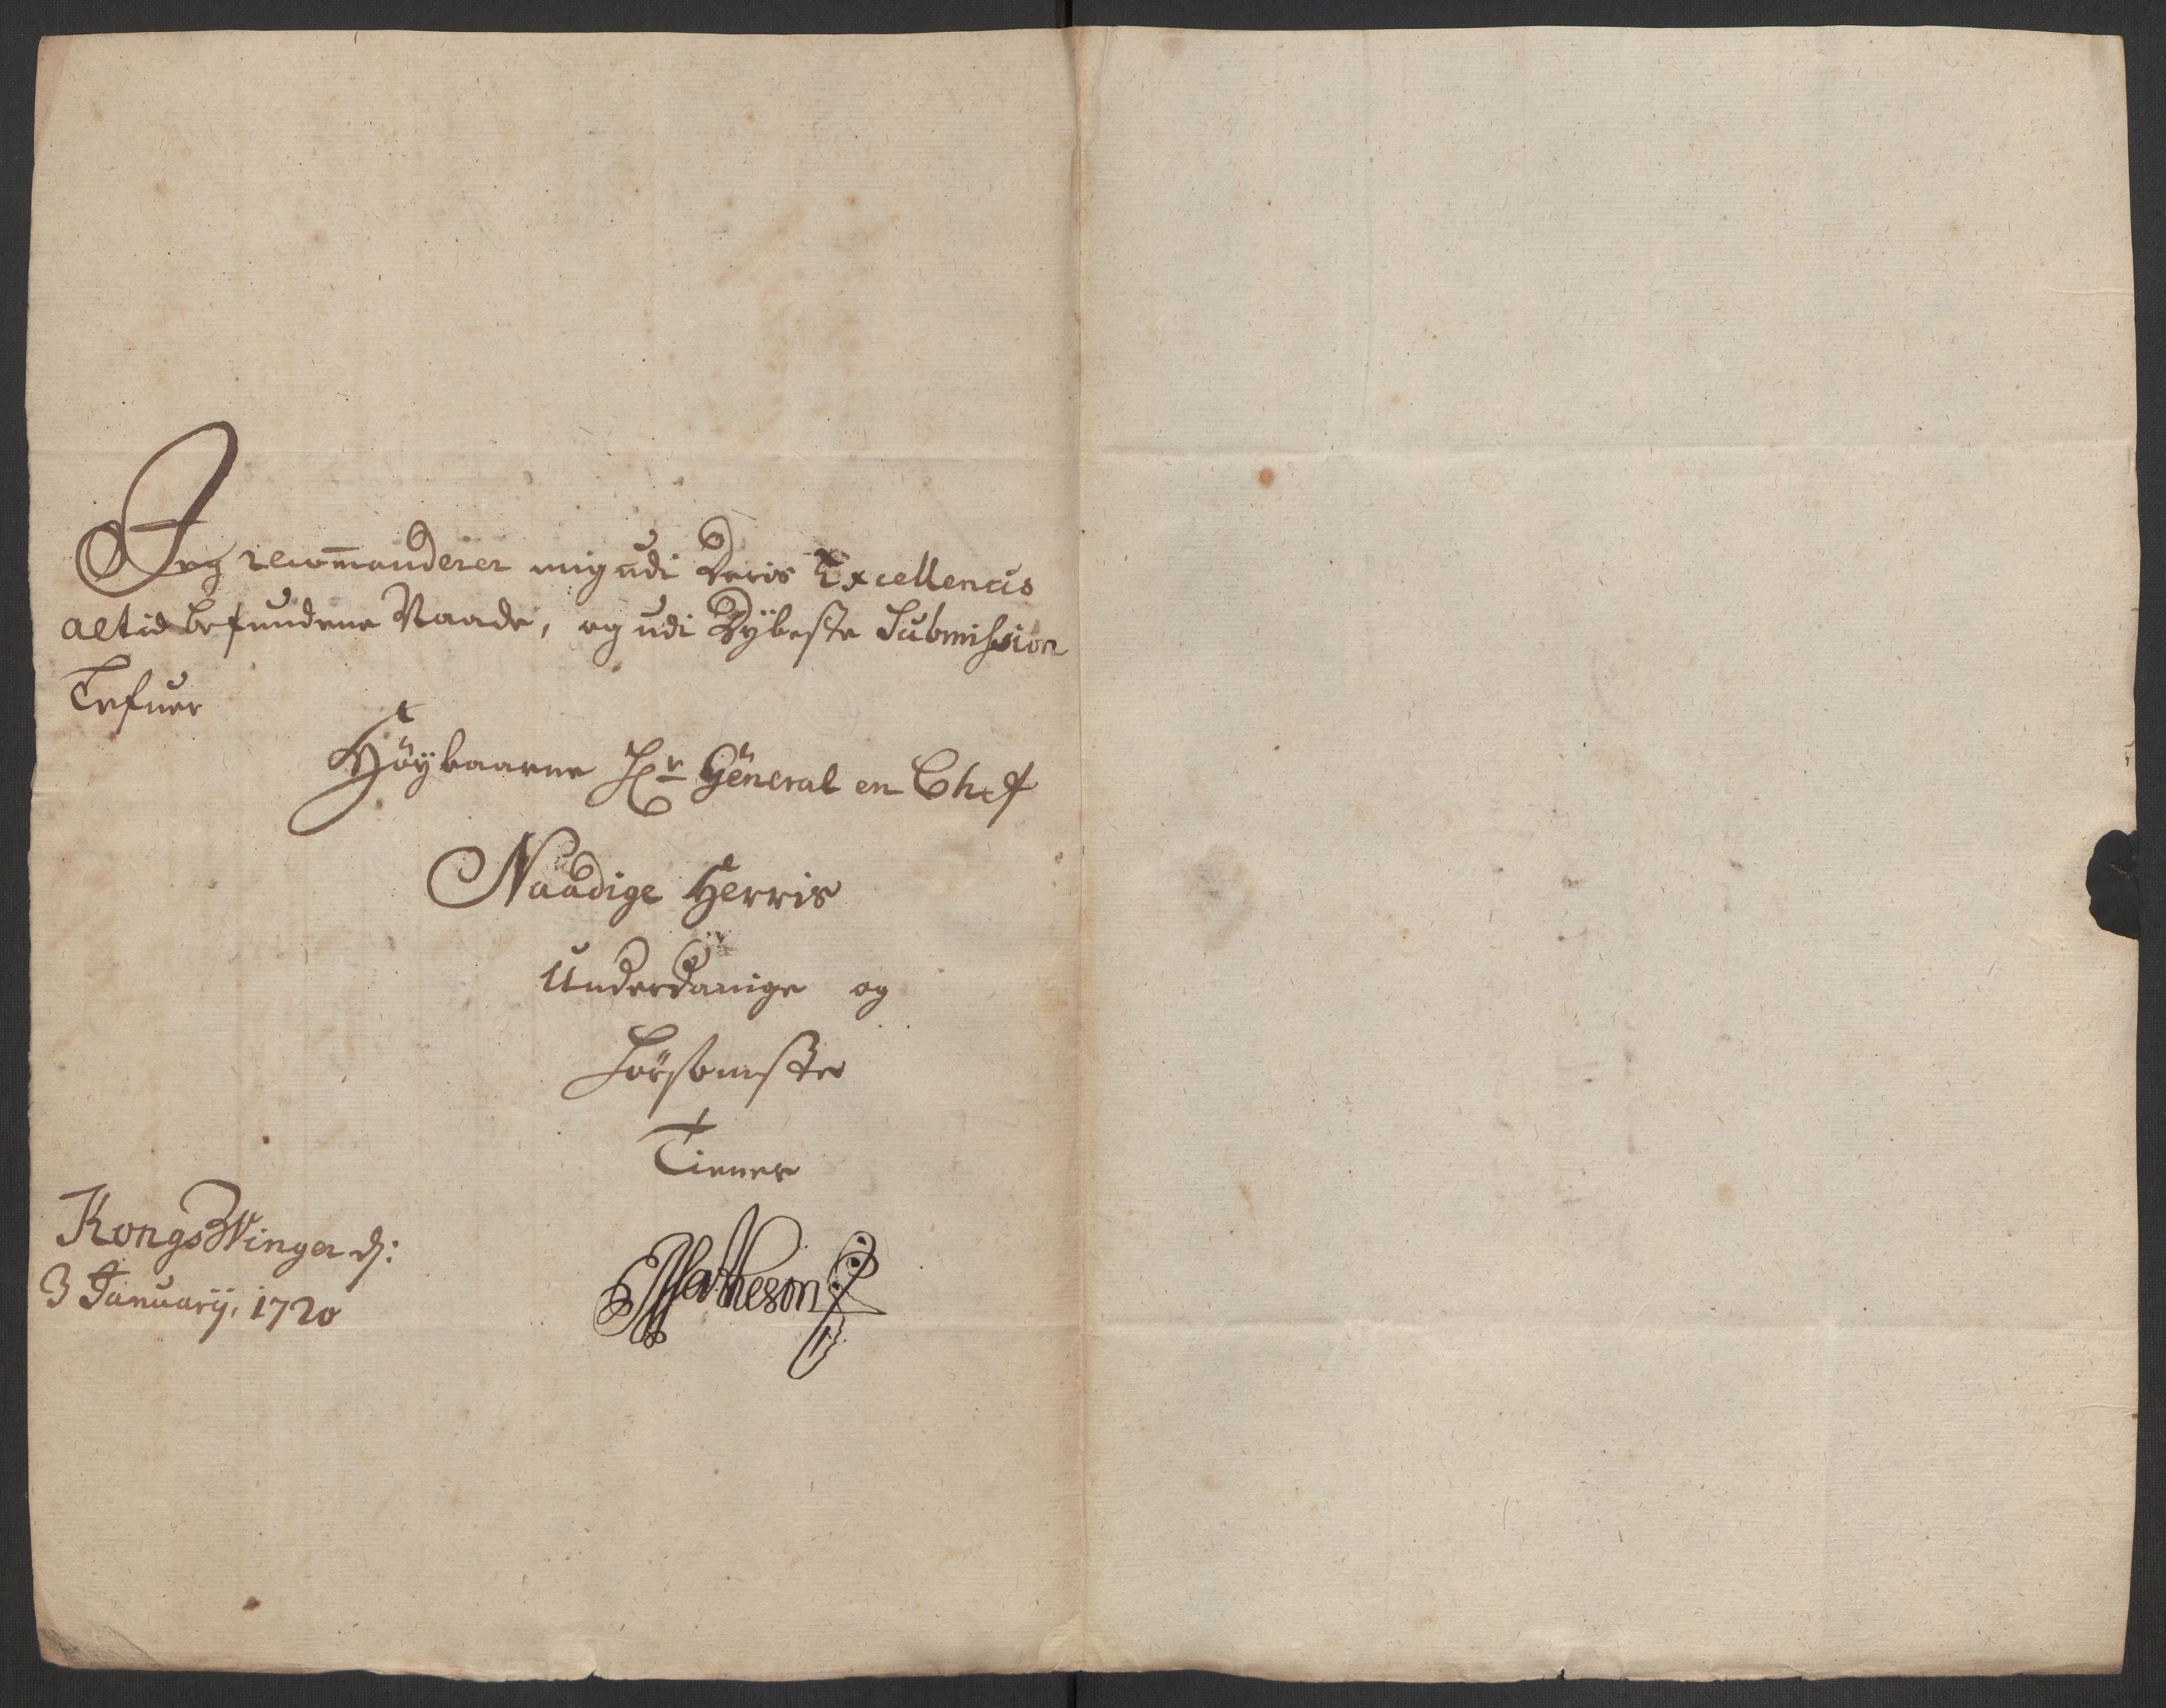 Jeg recom̄anderer mig udi Deris Excellencis
altid befundene Naade, og udi Dÿbeste Submission
Lefuer
Höÿbaarne Hr General en Chef
Naadige Herris
Underdanige og
Hörsomste
Tiener
KongsWinger d:
3 Januarÿ, 1720
Matheson